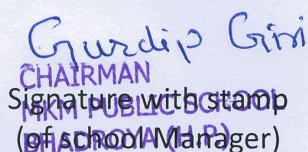 Gurdip Giri
CHAIRMAN
MKM PUBLIC SCHOOL
Signature with stamp
(of school Manager)